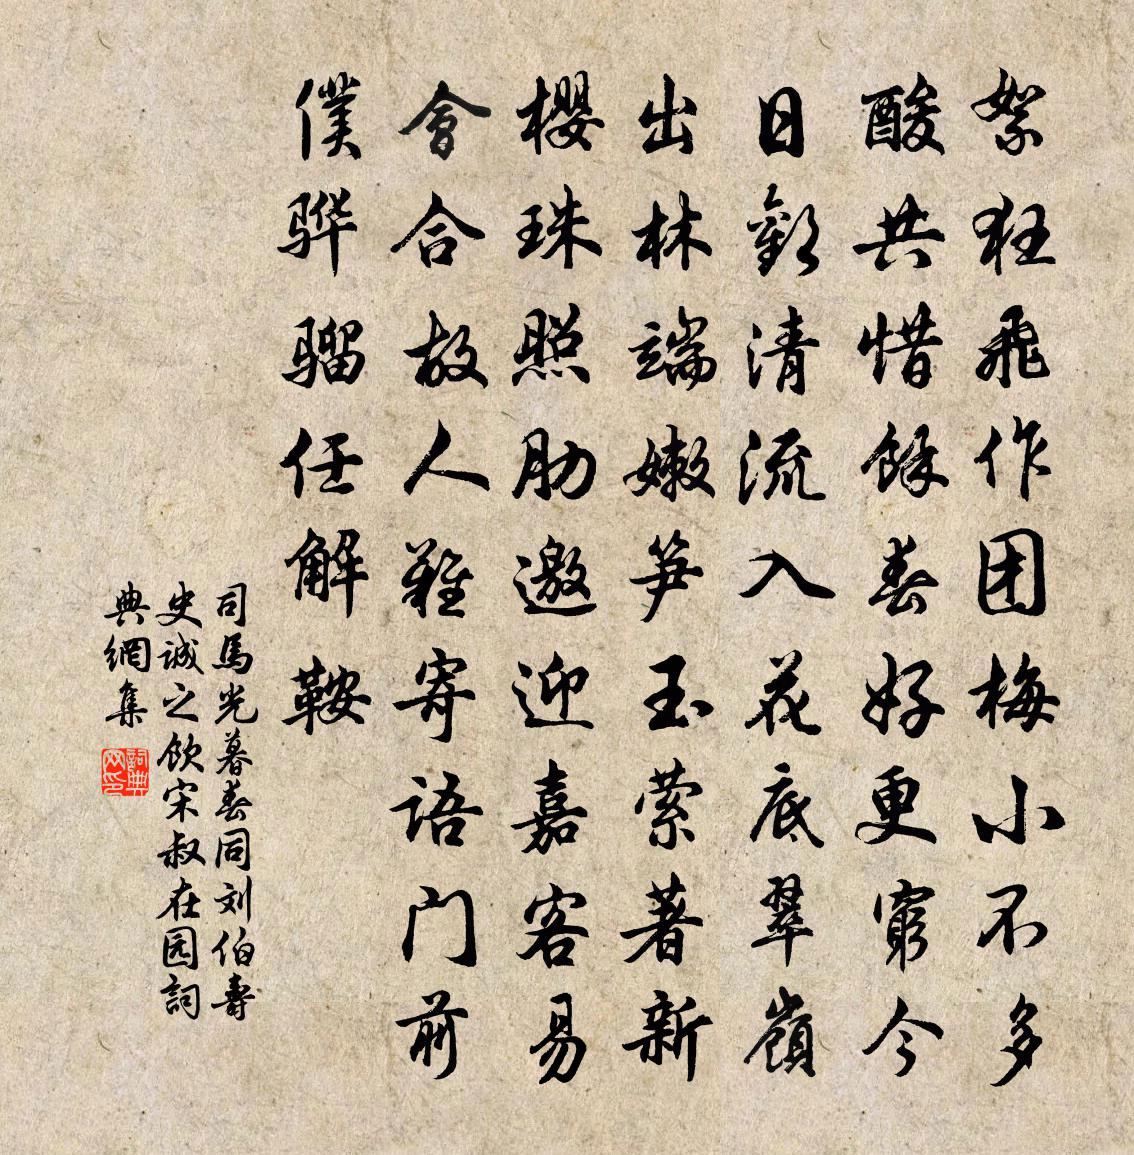 絮狂飛作团梅小不多
酸共惜餘春好更窮今
日歡清流入花底翠嶺
出林端嫩笋玉萦著新
櫻珠照肋邀迎嘉客易
會合故人難寄语门前
僕骅骝任解鞍
司馬光暮春同刘伯壽
史诚之飲宋叔在园詞
典網集
詞典
网印